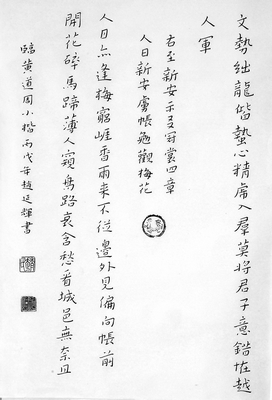 文勢絀龍偕蟄心精虎入羣莫將君子意錯恠越
人軍
右至新安示友冠裳四章
人日新安虜帳勉觀梅花
人日亦逢梅窮崕香雨来不從邊外見偏向帳前
開花碎馬蹄薄人窺鳥路哀含愁看城邑無奈且
臨黃道周小楷丙戌年趙廷輝書